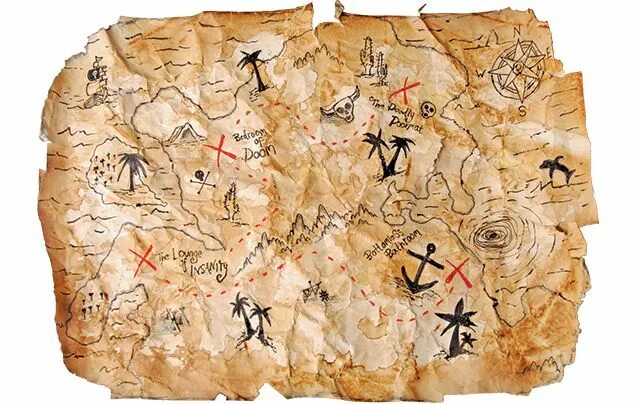 N
W
E
S
The Deadly
Doormat
Bedroom
of
Doom
Bottomless
Bathroom
The Lounge
of
INSANITY